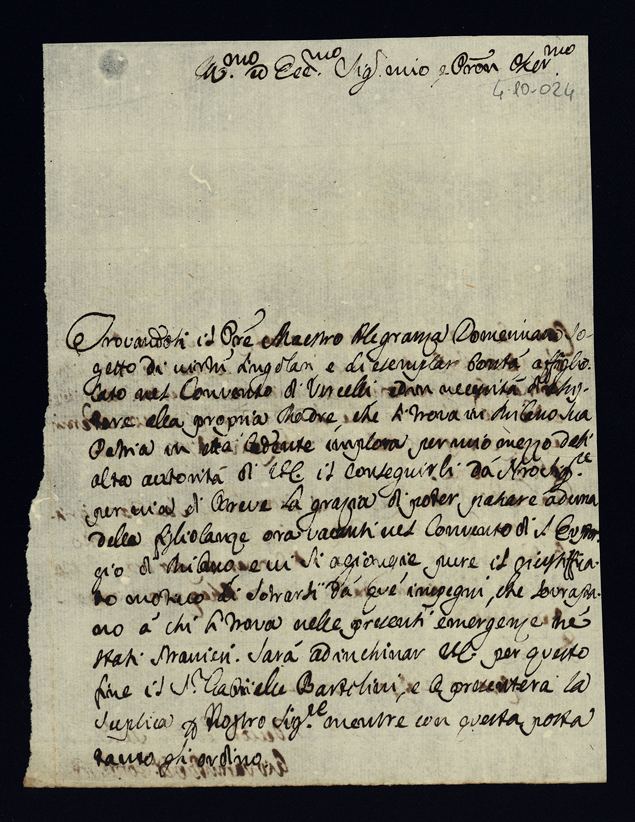 Ill.mo ed Ecc.mo Sig. mio e Pron Oss.mo
4-10-024
Trovandosi il Pre Maestro Alegranza Domenicano So-
getto di virtù singolari e di esemplar bontà affiglio-
lato nel Convento di Vercelli in necessità d'assi-
stere alla propria Madre, che si trova in Milano sua
Patria in età cadente implora per mio mezzo dall'
alta autorità di VE. il conseguirli da Nro Sig.re
per via di Breve la grazia di poter passare ad una
delle figliolanze ora vacanti nel Convento di S. Eustor-
gio di Milano e vi si agionge pure il giustifica-
to motivo di sotrarsi da que' impegni, che sovrasta-
no a chi si trova nelle presenti emergenze ne'
stati stranieri. Sarà ad inchinar VE. per questo
fine il Sr. Gabriele Bartolini, e le presenterà la
Suplica p Nostro Sig.re mentre con questa posta
tanto gli ordino.